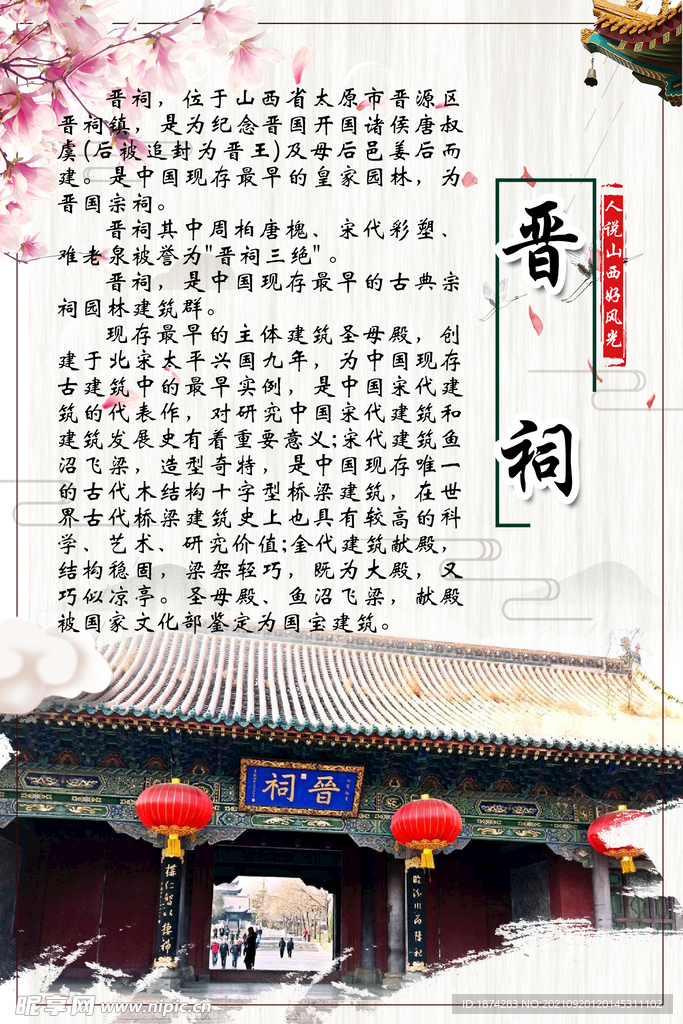 晋祠，位于山西省太原市晋源区
晋祠镇，是为纪念晋国开国诸侯唐叔
虞(后被追封为晋王)及母后邑姜后而
建。是中国现存最早的皇家园林，为
晋国宗祠。
晋祠其中周柏唐槐、宋代彩塑、
难老泉被誉为"晋祠三绝"。
晋祠，是中国现存最早的古典宗
祠园林建筑群。
现存最早的主体建筑圣母殿，创
建于北宋太平兴国九年，为中国现存
古建筑中的最早实例，是中国宋代建
筑的代表作，对研究中国宋代建筑和
建筑发展史有着重要意义;宋代建筑鱼
沼飞梁，造型奇特，是中国现存唯一
的古代木结构十字型桥梁建筑，在世
界古代桥梁建筑史上也具有较高的科
学、艺术、研究价值;金代建筑献殿，
结构稳固，梁架轻巧，既为大殿，又
巧似凉亭。圣母殿、鱼沼飞梁，献殿
被国家文化部鉴定为国宝建筑。
晋祠
人说山西好风光
祠晋
昵享网 www.nipic.cn
ID:1874283 NO:20210920120145311102